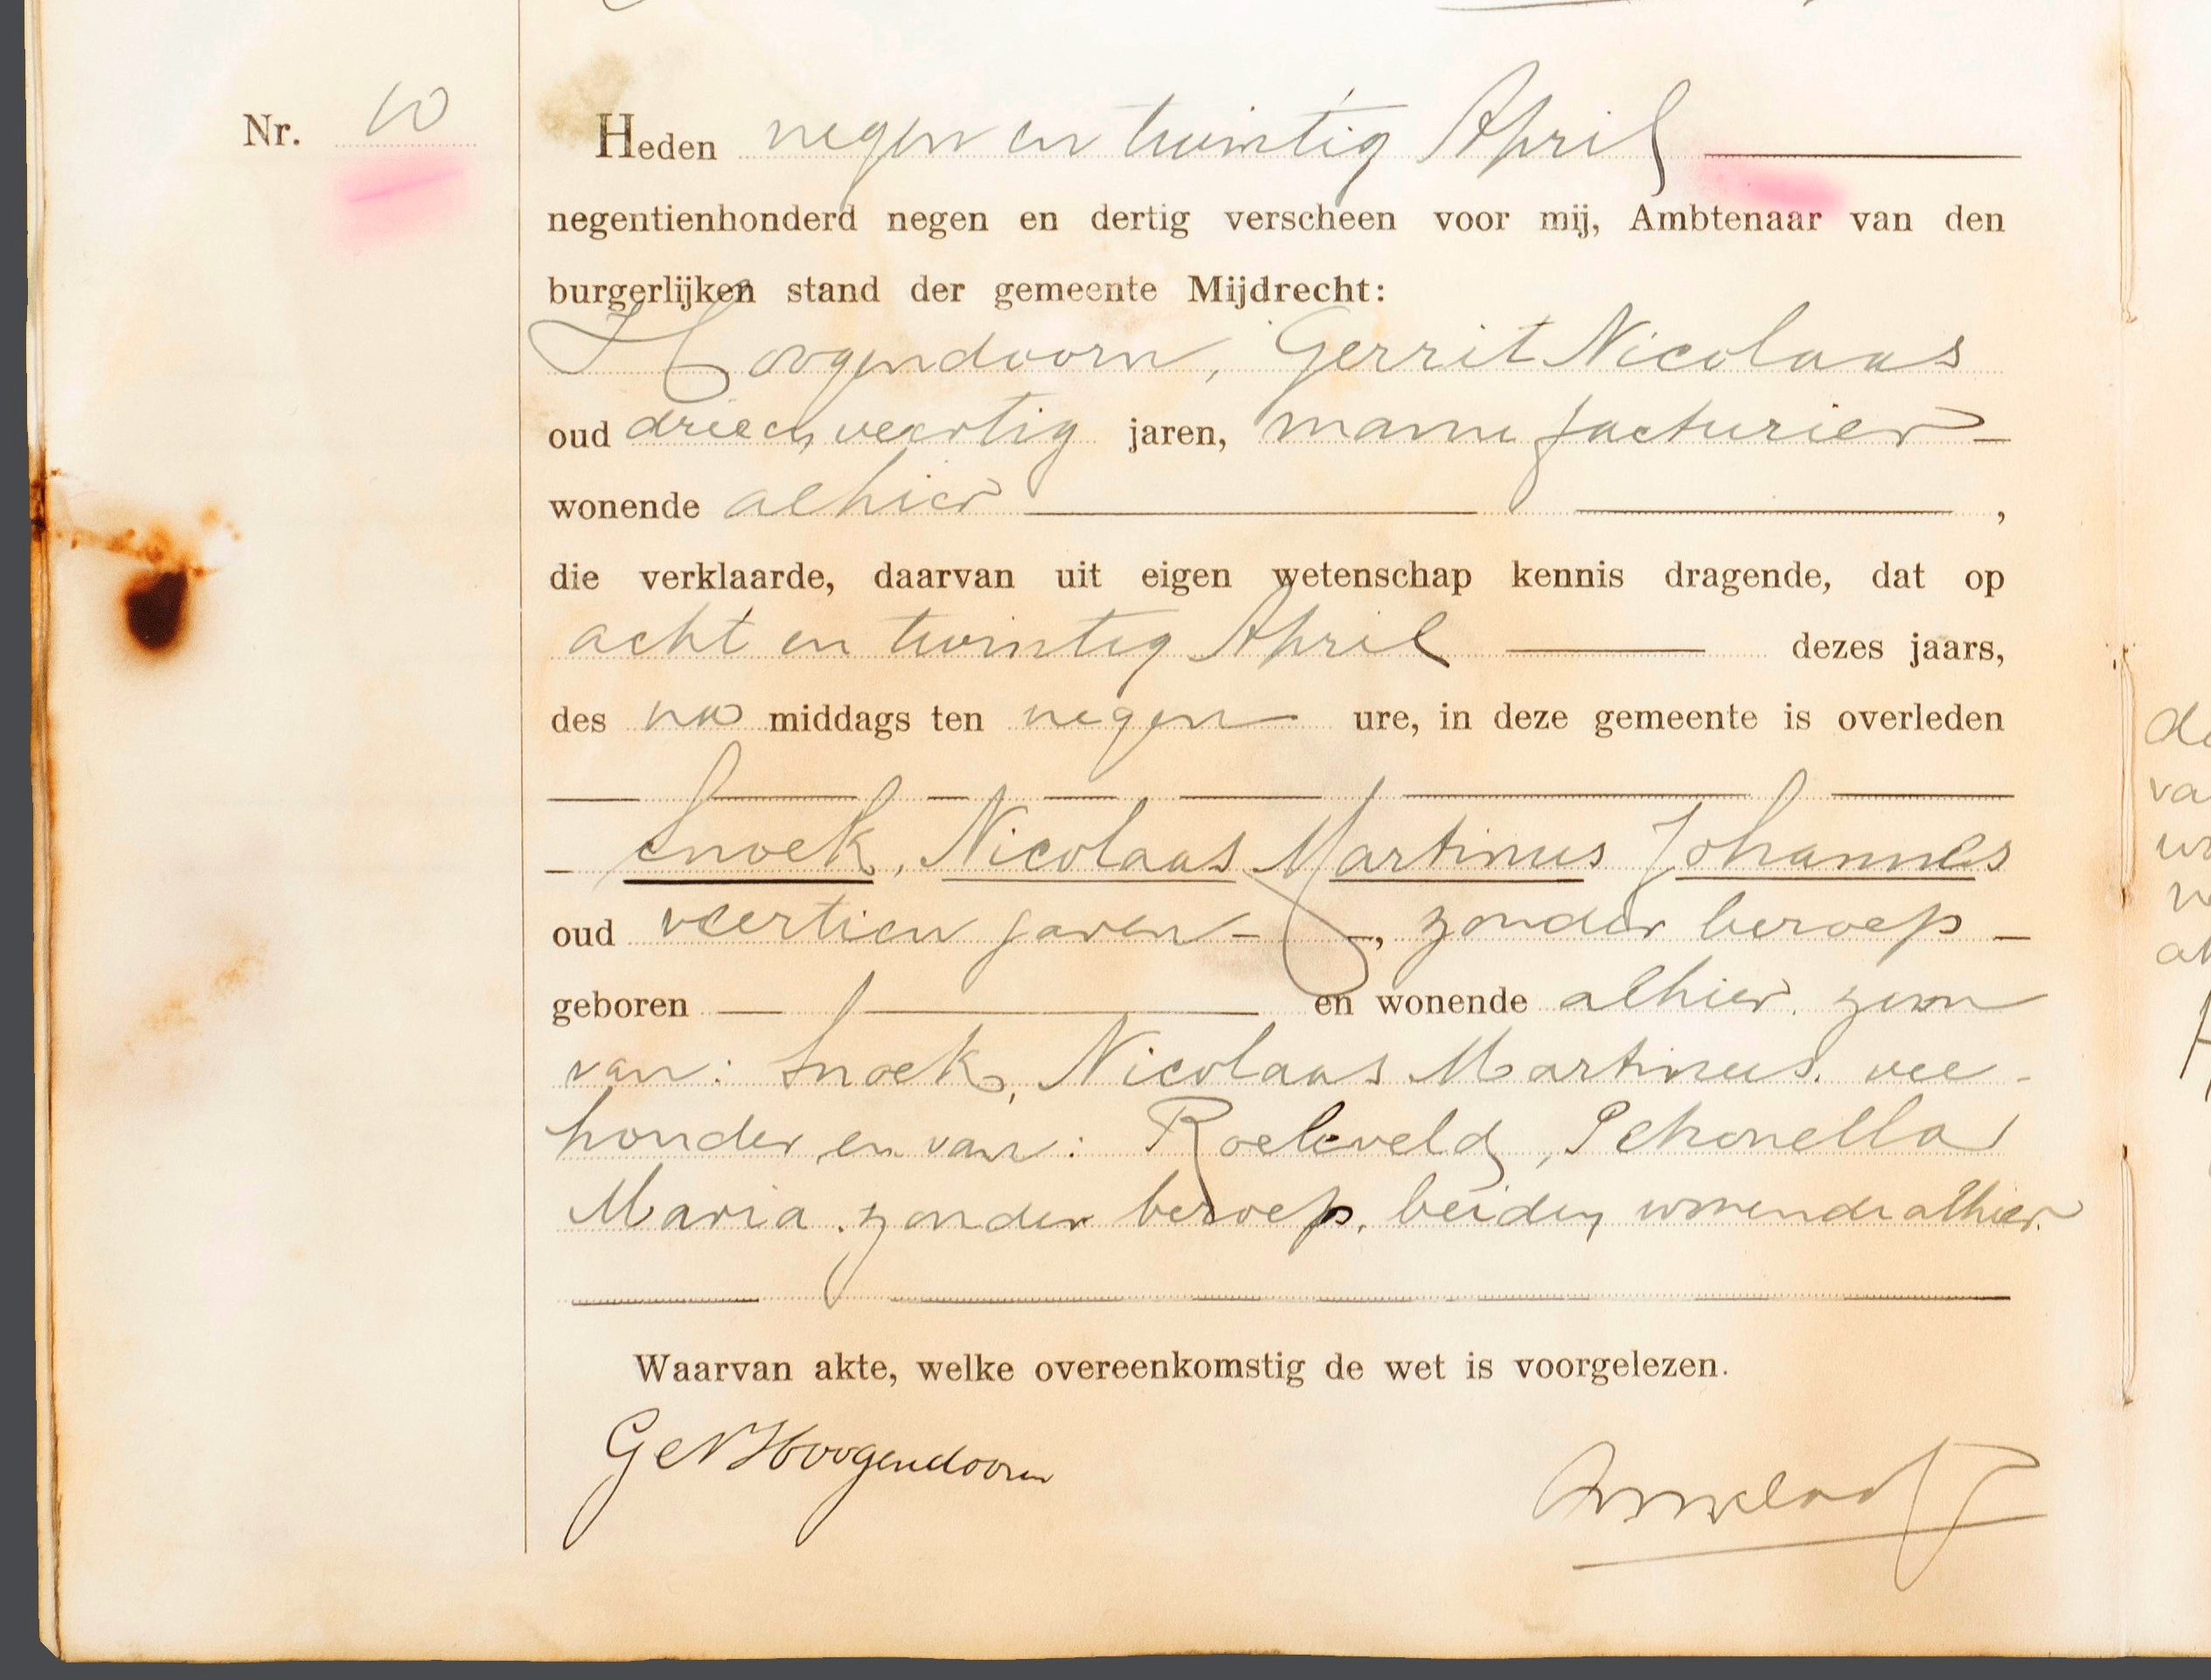 Nr. 10
Heden negen en twintig April
negentienhonderd negen en dertig verscheen voor mij, Ambtenaar van den
burgerlijken stand der gemeente Mijdrecht:
Hoogendoorn, Gerrit Nicolaas
oud drie en veertig jaren, manufacturier
wonende alhier ,
die verklaarde, daarvan uit eigen wetenschap kennis dragende, dat op
acht en twintig April dezes jaars,
des na middags ten negen ure, in deze gemeente is overleden
Snoek, Nicolaas Martinus Johannes
oud veertien jaren, zonder beroep
geboren en wonende alhier, zoon
van: Snoek, Nicolaas Martinus, vee-
houder en van: Roeleveld, Petronella
Maria, zonder beroep, beiden wonende alhier.
Waarvan akte, welke overeenkomstig de wet is voorgelezen.
GNHoogendoorn